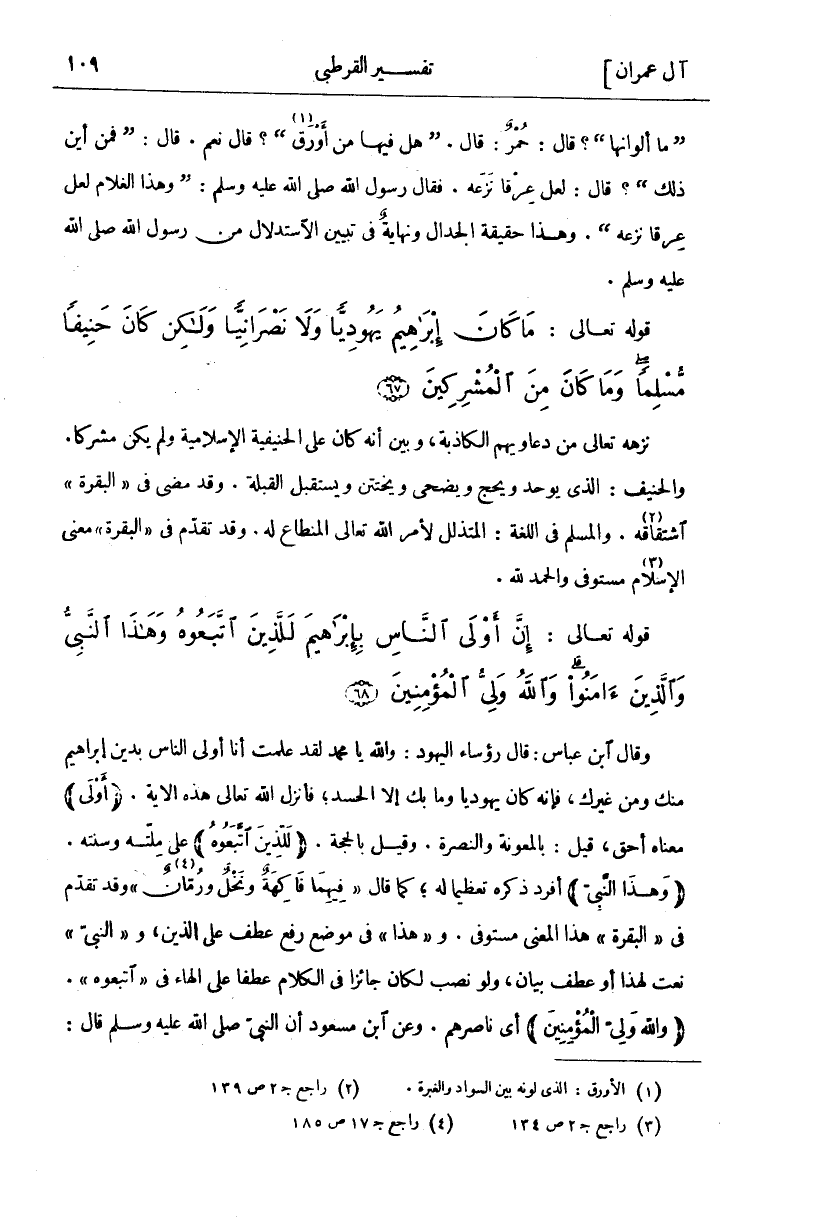 آل عمران] تفسير القرطبى ١٠٩
”ما ألوانها“؟ قال : حُمْرٌ : قال . ”هل فيها من أَوْرَق(١)“؟ قال نعم . قال : ”فمن أين
ذلك“؟ قال : لعل عِرْقا نَزَعه . فقال رسول الله صلى الله عليه وسلم : ”وهذا الغلام لعل
عِرقا نزعه“ . وهذا حقيقة الجدال ونهايةٌ فى تبيين الاستدلال من رسول الله صلى الله
عليه وسلم .
قوله تعالى : مَا كَانَ إِبْرَٰهِيمُ يَهُودِيًّا وَلَا نَصْرَانِيًّا وَلَـٰكِن كَانَ حَنِيفًا
مُّسْلِمًا ۖ وَمَا كَانَ مِنَ ٱلْمُشْرِكِينَ ٦٧
نزهه تعالى من دعاويهم الكاذبة، وبين أنه كان على الحنيفية الإسلامية ولم يكن مشركا.
والحنيف : الذى يوحد ويحج ويضحى ويختتن ويستقبل القبلة . وقد مضى فى « البقرة »
ٱشتقاقه(٢) . والمسلم فى اللغة : المتذلل لأمر الله تعالى المنطاع له . وقد تقدّم فى «البقرة» معنى
الإسلام(٣) مستوفى والحمد لله .
قوله تعالى : إِنَّ أَوْلَى ٱلنَّاسِ بِإِبْرَٰهِيمَ لَلَّذِينَ ٱتَّبَعُوهُ وَهَـٰذَا ٱلنَّبِىُّ
وَٱلَّذِينَ ءَامَنُوا۟ ۗ وَٱللَّهُ وَلِىُّ ٱلْمُؤْمِنِينَ ٦٨
وقال ٱبن عباس : قال رؤساء اليهود : والله يا محمد لقد علمت أنا أولى الناس بدين إبراهيم
منك ومن غيرك، فإنه كان يهوديا وما بك إلا الحسد؛ فأنزل الله تعالى هذه الاية . ﴿أَوْلَى﴾
معناه أحق، قيل : بالمعونة والنصرة . وقيل بالحجة . ﴿لَلَّذِينَ ٱتَّبَعُوهُ﴾ على مِلّته وسنته .
﴿وَهـذَا النَّبِىّ﴾ أفرد ذكره تعظيما له ؛ كما قال « فِيهِمَا فَاكِهَةٌ وَنَخْلٌ ورُمَّانٌ(٤) » وقد تقدّم
فى « البقرة » هذا المعنى مستوفى . و « هذا » فى موضع رفع عطف على الذين، و « النبىّ »
نعت لهذا أو عطف بيان، ولو نصب لكان جائزا فى الكلام عطفا على الهاء فى « ٱتبعوه » .
﴿والله وَلِىّ الْمُؤْمِنِينَ﴾ أى ناصرهم . وعن ٱبن مسعود أن النبىّ صلى الله عليه وسلم قال :
(١) الأورق : الذى لونه بين السواد والغبرة . (٢) راجع جـ٢ ص ١٣٩
(٣) راجع جـ٢ ص ١٣٤ (٤) راجع جـ١٧ ص ١٨٥